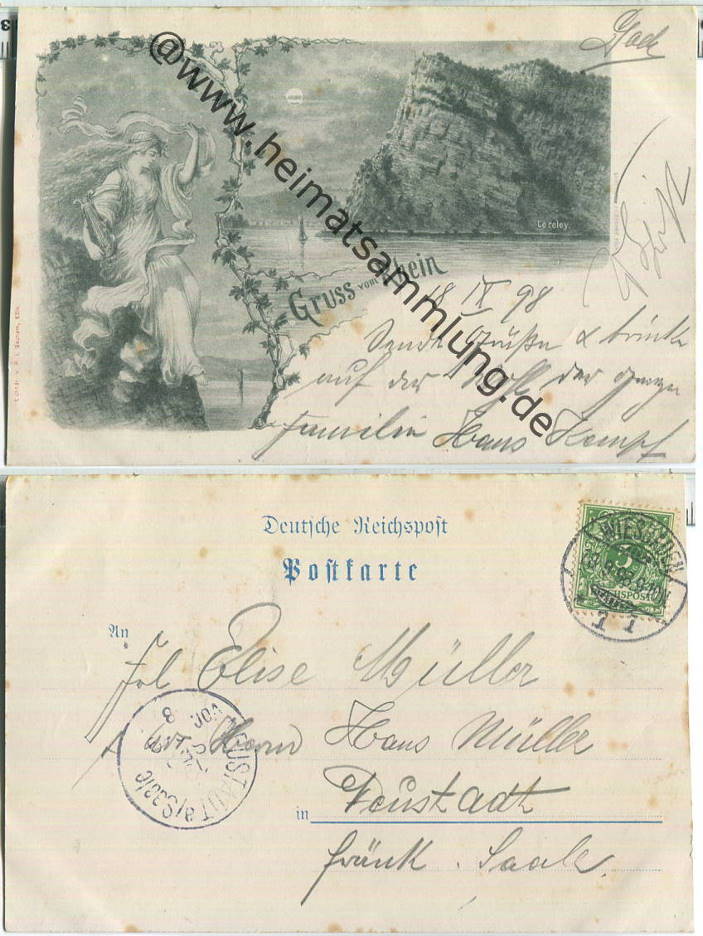 @www.heimatsammlung.de
Loreley
Gruss vom Rhein
18 IX 98
Sende Grüße &
auf der der ganzen
Familie Hans Kempf
Deutsche Reichspost
Postkarte
An
Frl Elise Müller
Herrn Hans Müller
in Neustadt
fränk. Saale
WIESBADEN
REICHSPOST
NEUSTADT a/Saale